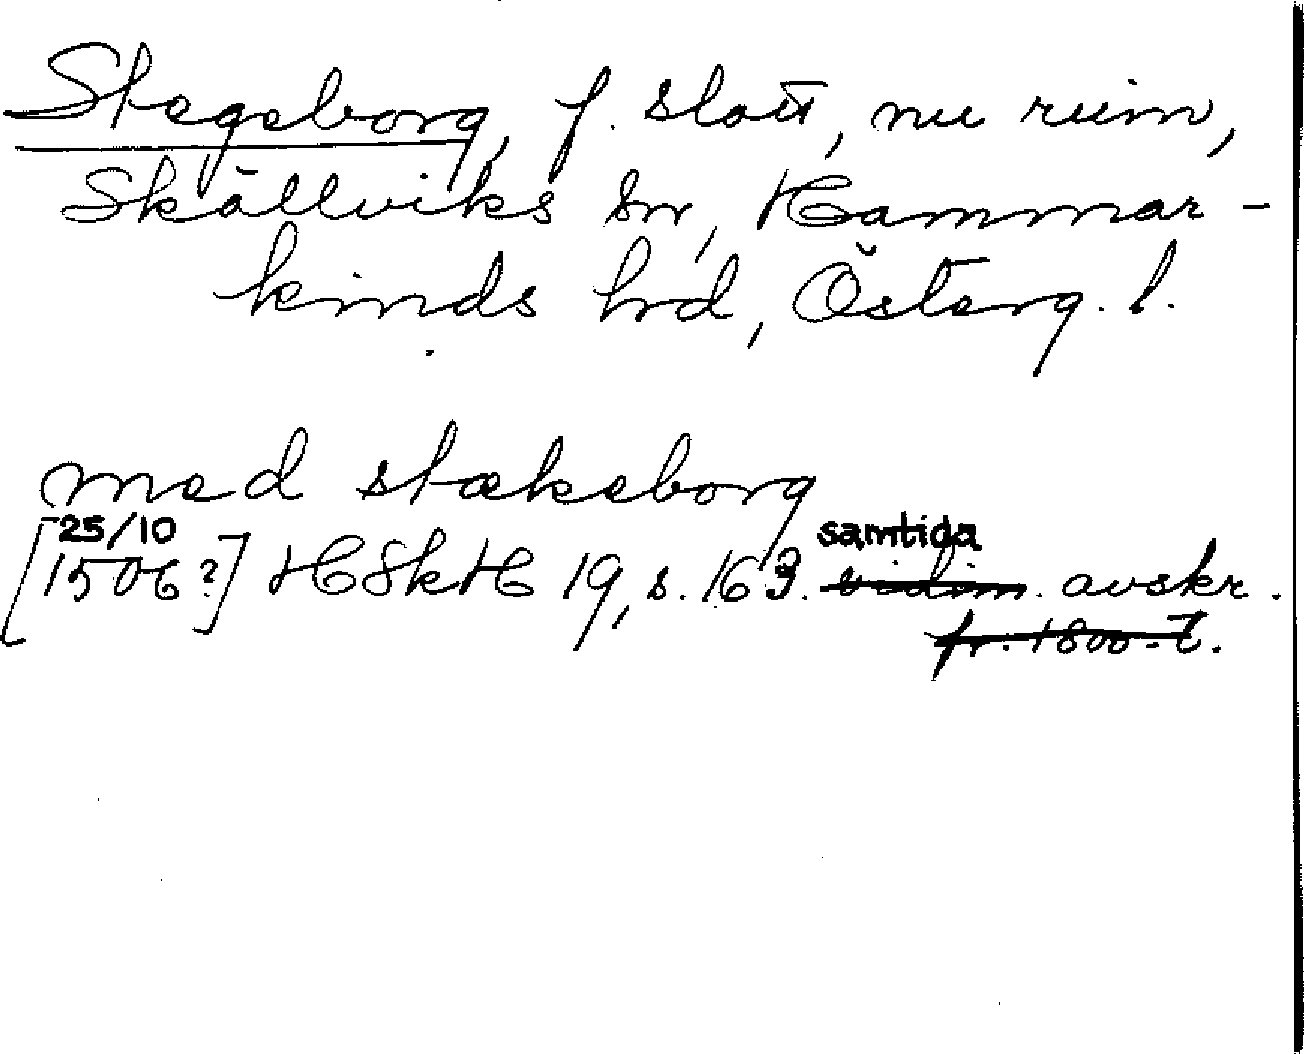 Stegeborg, f. slott, nu ruin,
Skällviks sn, Hammar-
kinds hd, Österg. l.
med stækeborg
25/10
[1506?] HSkH 19, s. 163. samtida vidim. avskr.
fr. 1800-t.